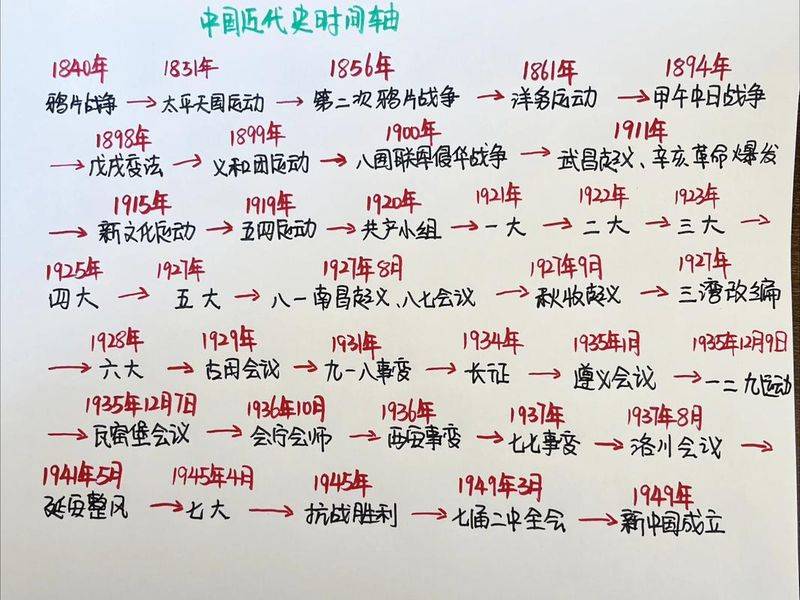 中国近代史时间轴
1840年 1831年 1856年 1861年 1894年
鸦片战争 → 太平天国运动 → 第二次鸦片战争 → 洋务运动 → 甲午中日战争
1898年 1899年 1900年 1911年
→ 戊戌变法 → 义和团运动 → 八国联军侵华战争 → 武昌起义、辛亥革命爆发
1915年 1919年 1920年 1921年 1922年 1923年
→ 新文化运动 → 五四运动 → 共产小组 → 一大 → 二大 → 三大 →
1925年 1927年 1927年8月 1927年9月 1927年
四大 → 五大 → 八一南昌起义、八七会议 → 秋收起义 → 三湾改编
1928年 1929年 1931年 1934年 1935年1月 1935年12月9日
→ 六大 → 古田会议 → 九一八事变 → 长征 → 遵义会议 → 一二九运动
1935年12月7日 1936年10月 1936年 1937年 1937年8月
→ 瓦窑堡会议 → 会宁会师 → 西安事变 → 七七事变 → 洛川会议 →
1941年5月 1945年4月 1945年 1949年3月 1949年
延安整风 → 七大 → 抗战胜利 → 七届二中全会 → 新中国成立